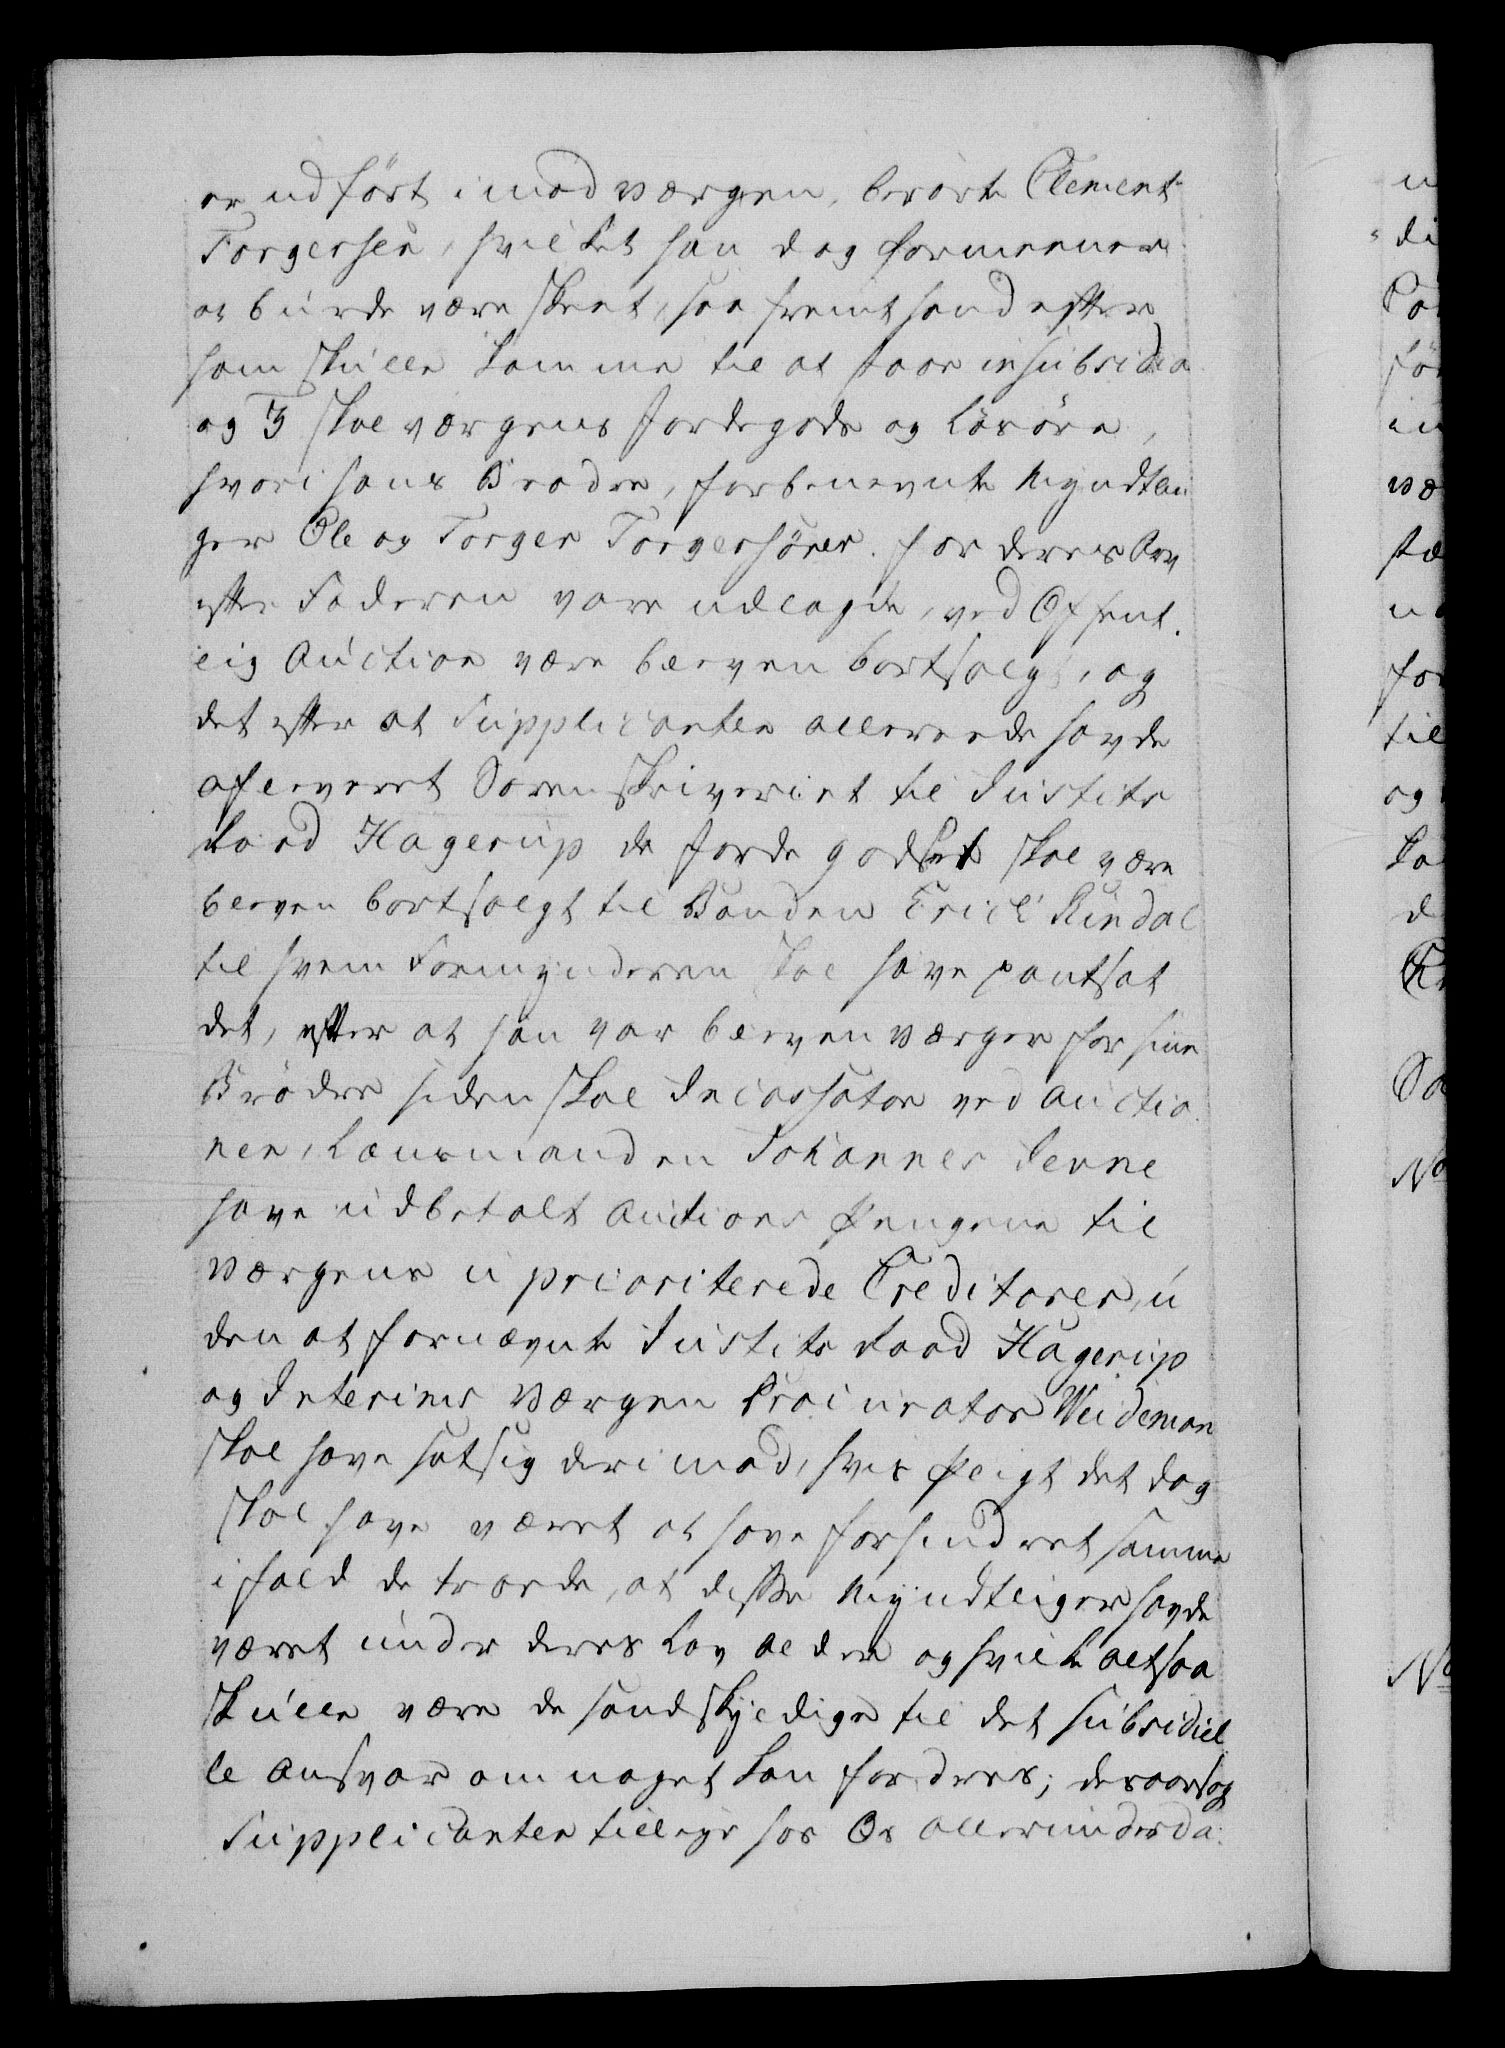 er udført imod Værgen, berørte Clement
Torgersen, hvilket han dog formeener
at burde være skeet, saafremt hand efter
ham skulle komme til at staae in subsidio
og 3 skal Værgens Jordegods og Løsøre,
hvori hans Brødre, forbenevnte Myndtlin
ger Ole og Torger Torgersøner for deres Arv
efter Faderen vare udlagde, ved Offent
lig Auction være bleven bortsolgt, og
det efter at Supplicanten allereede havde
afleveret Sorenskriveriet til Justits
Raad Hagerup da Jordegodset skal være
bleven bortsolgt til Bonden Erich Rindal
til hvem Formynderen skal have pantsat
det, efter at han var bleven Værge for sine
Brødre siden skal Incassator ved Auctio
nen, Lænsmanden Johannes
have udbetalt Auctions Pengene til
Værgens uprioriterede Creditorer, u
den at fornævnte Justits Raad Hagerup
og Interims Værgen Procurator Weideman
skal have sat sig derimod, hvis Pligt det dog
skal have været at have forhindret samme
ifald de troede, at disse Myndtlinger havde
været under deres Lav Alder og hvilke altsaa
skulle være de sandskyldige til det subsidiel
le Ansvar om noget kan fordres; desaarsag
Supplicanten tillige hos Os allerunderda